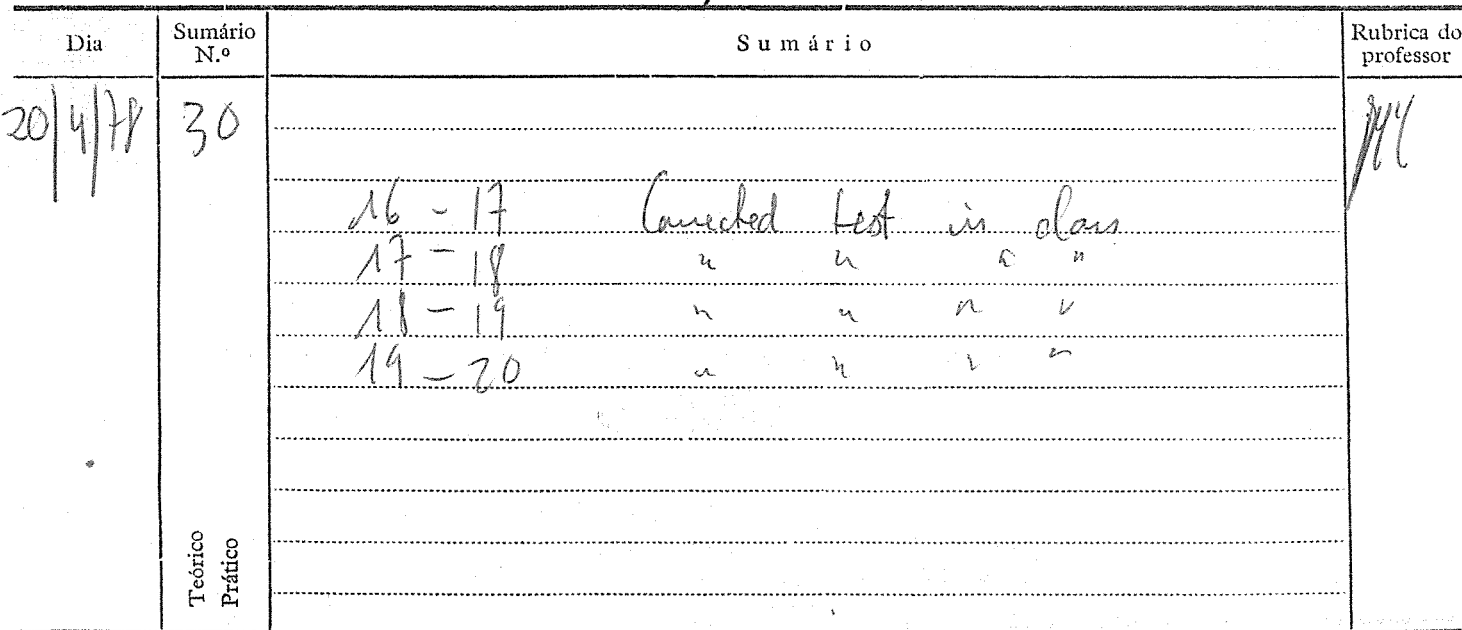 Dia Sumário N.º Sumário Rubrica do professor
20/4/78 30
16 - 17 Corrected test in class
17 - 18 " " " "
18 - 19 " " " "
19 - 20 " " " "
Teórico
Prático